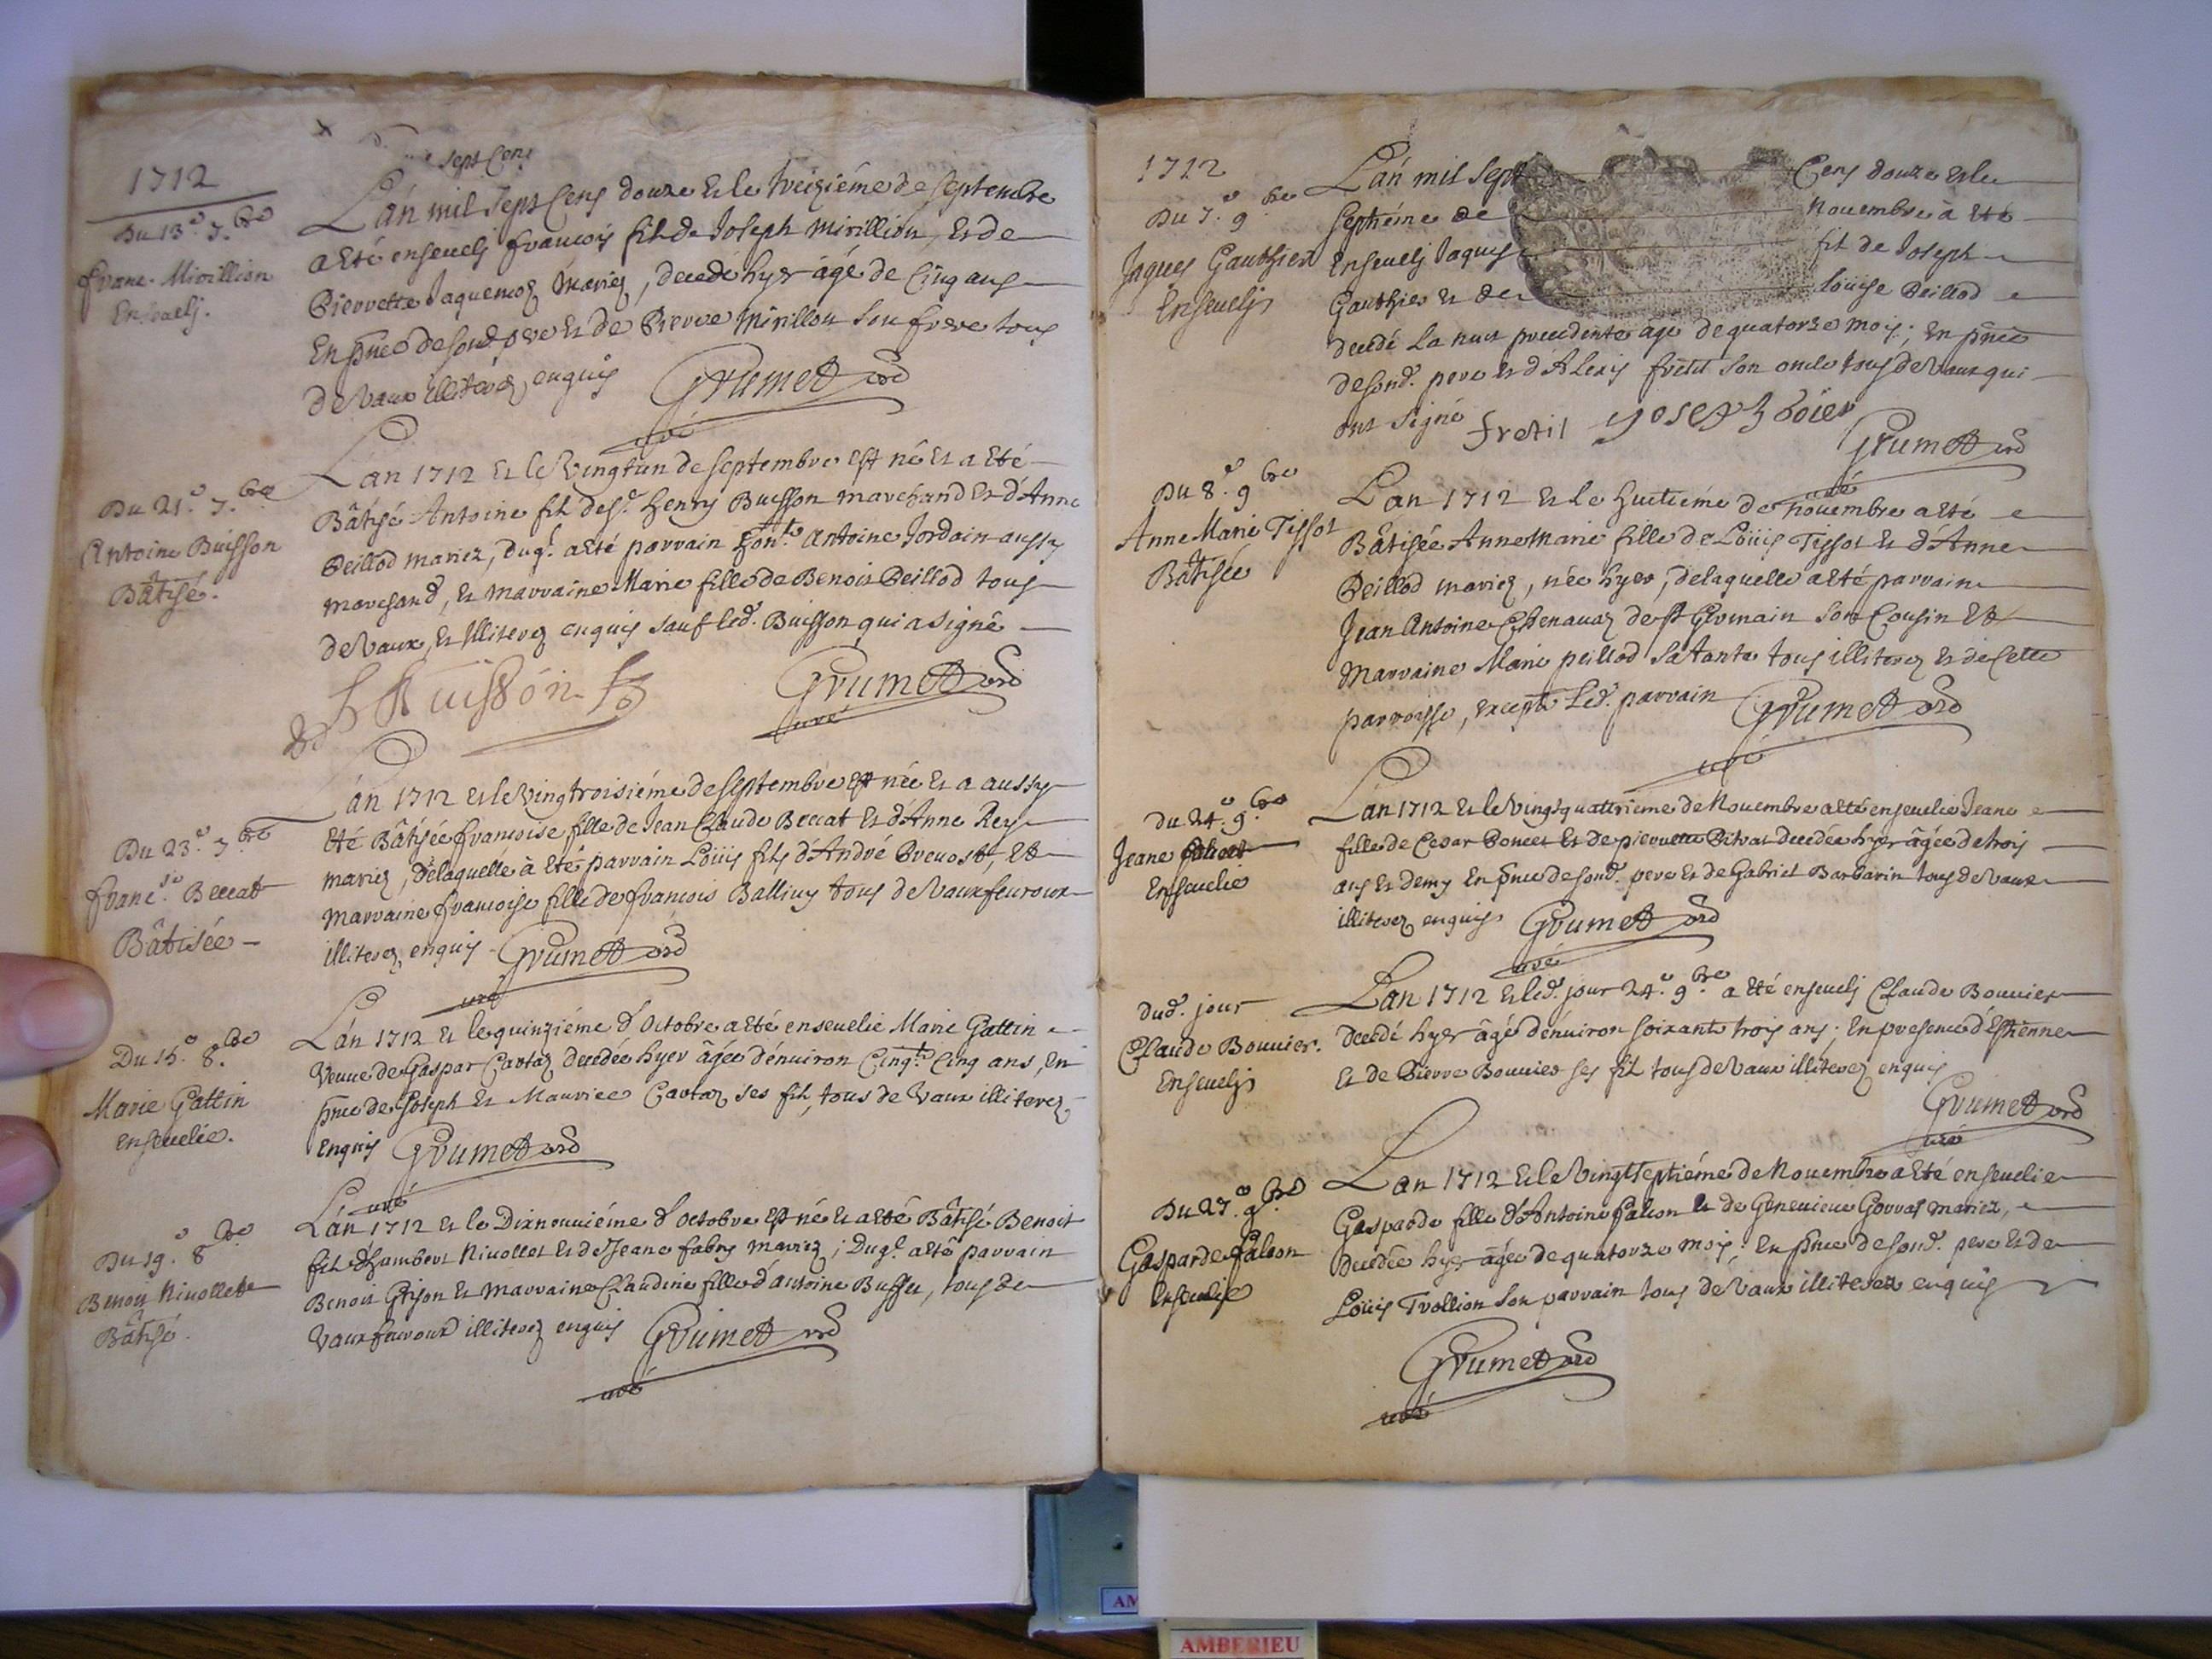 1712
sept Cens
Du 13.e 7.bre
franc. Mirillion
Enseuely.
L'an mil sept Cens douze Et le treiziéme de septembre
a Eté enseuely francois fil de Joseph Mirillion, Et de
Pierrette Jaquemoz Mariez, decedé hyer âgé de Cinq ans
En pnce de sond. pere Et de Pierre Mirillon son frere tous
de Vaux illiterez enquis Grumet ord
curé
Du 21.e 7.bre
Antoine Buisson
Bâtisé.
L'an 1712 Et le Vingt un de septembre Est né Et a Eté
Bâtisé Antoine fil de sr. henry Buisson marchand Et d'Anne
Peillod mariez, duql. a Eté parrain hon.te Antoine Jordain aussy
marchand, Et marraine Marie fille de Benoit Peillod tous
de Vaux, Et illiterez enquis sauf led. Buisson qui a signé
h Buisson
Grumet ord
curé
Du 23.e 7.bre
franc.se Beccat
Bâtisée
L'an 1712 et le Vingtroisiéme de septembre Est née Et a aussy
Eté Bâtisée francoise fille de Jean Claude Beccat Et d'Anne Rey
mariez, de laquelle à Eté parrain Loüis fils d'André Preuost, Et
marraine francoise fille de francois Balliuy tous de Vaux feuroux
illiterez enquis Grumet ord
curé
Du 15.e 8.bre
Marie Gattin
enseuelie.
L'an 1712 Et le quinziéme d'Octobre a Eté enseuelie Marie Gattin
Veuue de Gaspar Cartaz decedée hyer âgée d'enuiron Cinq.te Cinq ans, En
pnce de Joseph Et Maurice Cartaz ses fil, tous de Vaux illiterez
enquis Grumet ord
curé
Du 19.e 8.bre
Benoit Niuollet
Bâtisé.
L'an 1712 Et le Dixneuuiéme d'Octobre Est né Et a Eté Bâtisé Benoit
fil d'humbert Niuollet Et de Jeane fabry mariez; Duql. a Eté parrain
Benoit Grison Et marraine Claudine fille d'antoine Buffu, tous de
Vaux feuroux illiterez enquis Grumet ord
curé
1712
Du 7.e 9.bre
Jaques Gauthier
Enseuely
L'an mil sept Cens douze et le
septiéme de Nouembre a Eté
Enseuely Jaques fil de Joseph
Gauthier Et de loüise Peillod
decedé La nuit precedente âgé de quatorze mois; En pnce
de sond. pere Et d'Alexis fretil son oncle tous de Vaux qui
ont signé fretil
Grumet ord
curé
Du 8.e 9.bre
Anne Marie Tissot
Bâtisée
L'an 1712 Et le huitiéme de nouembre a Eté
Bâtisée Anne Marie fille de Loüis Tissot Et d'Anne
Peillod mariez, née hyer, de laquelle a Eté parrain
Jean Antoine Chenauaz de St Germain son Cousin Et
Marraine Marie peillod sa Tante tous illiterez Et de Cette
parroisse, excepté Led. parrain Grumet ord
curé
Du 24.e 9.bre
Jeane
Enseuelie
L'an 1712 Et le Vingt quattrieme de Nouembre a Eté enseuelie Jeane
fille de Cesar Poncet Et de pierrette Pitrat decedée hyer âgée de trois
ans Et demy En pnce de sond. pere Et de Gabriel Barbarin tous de Vaux
illiterez enquis Grumet ord
curé
Dud. jour
Claude Bouuier.
Enseuely
L'an 1712 Et led. jour 24.e 9.bre a Eté enseuely Claude Bouuier
decedé hyer âgé d'enuiron soixante trois ans; En presence d'Estienne
Et de Pierre Bouuier ses fil tous de Vaux illiterez enquis
Grumet ord
curé
Du 27.e 9.bre
Gasparde falcon
Enseuelie
L'an 1712 Et le Vingt septiéme de Nouembre a Eté enseuelie
Gasparde fille d'Antoine falcon Et de Geneuieue Gorraz mariez,
decedée hyer âgée de quatorze mois; En pnce de sond. pere Et de
Loüis Trollion son parrain tous de Vaux illiterez enquis
Grumet ord
curé
AM
AMBERIEU